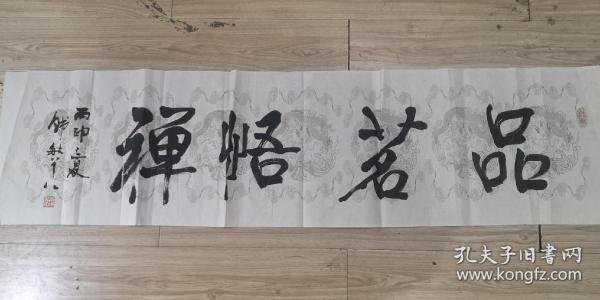 品茗悟禅
丙申之夏
钱
孔夫子旧书网
www.kongfz.com